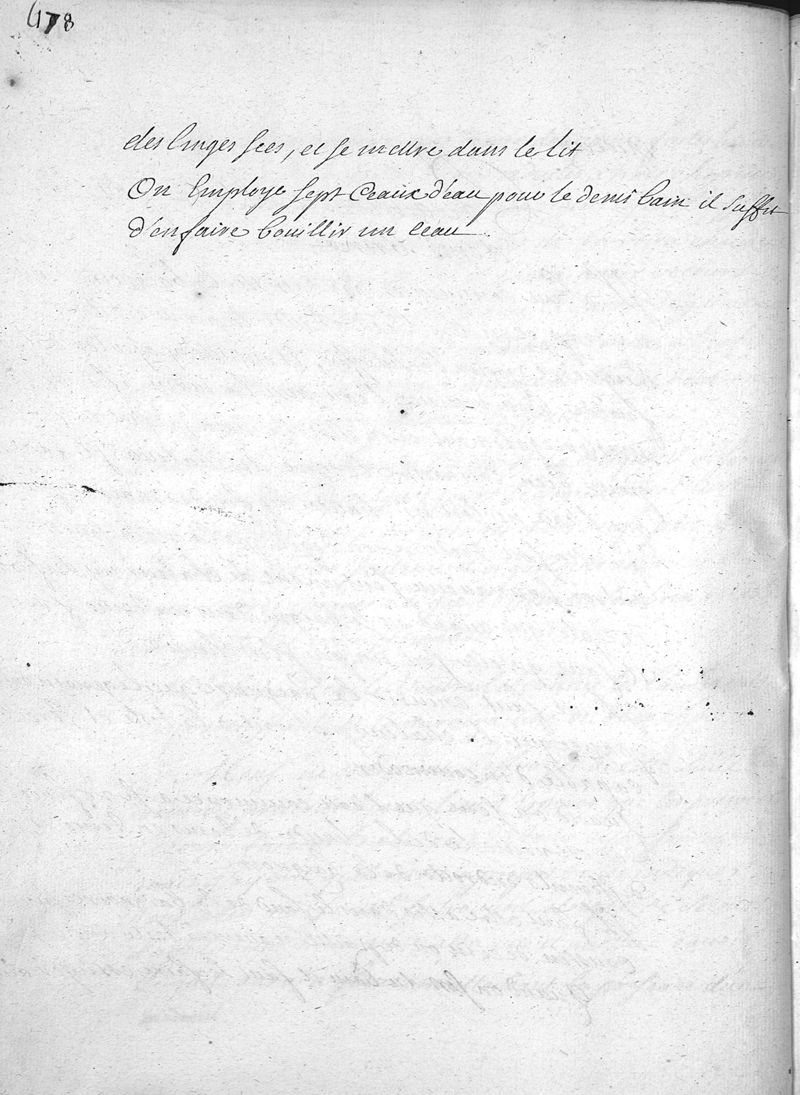 178
des linges secs, et se mettre dans le lit
On Employe sept Ceaux d'eau pour le demi bain il suffit
d'en faire bouillir un ceau